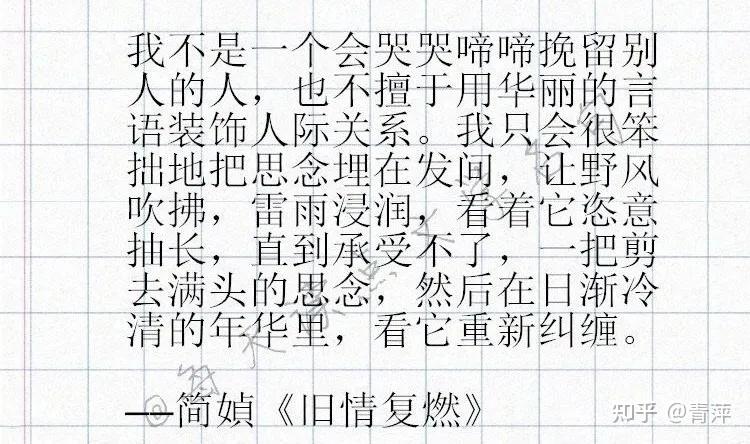 我不是一个会哭哭啼啼挽留别
人的人，也不擅于用华丽的言
语装饰人际关系。我只会很笨
拙地把思念埋在发间，让野风
吹拂，雷雨浸润，看着它恣意
抽长，直到承受不了，一把剪
去满头的思念，然后在日渐冷
清的年华里，看它重新纠缠。
——简媜《旧情复燃》
知乎 @青萍